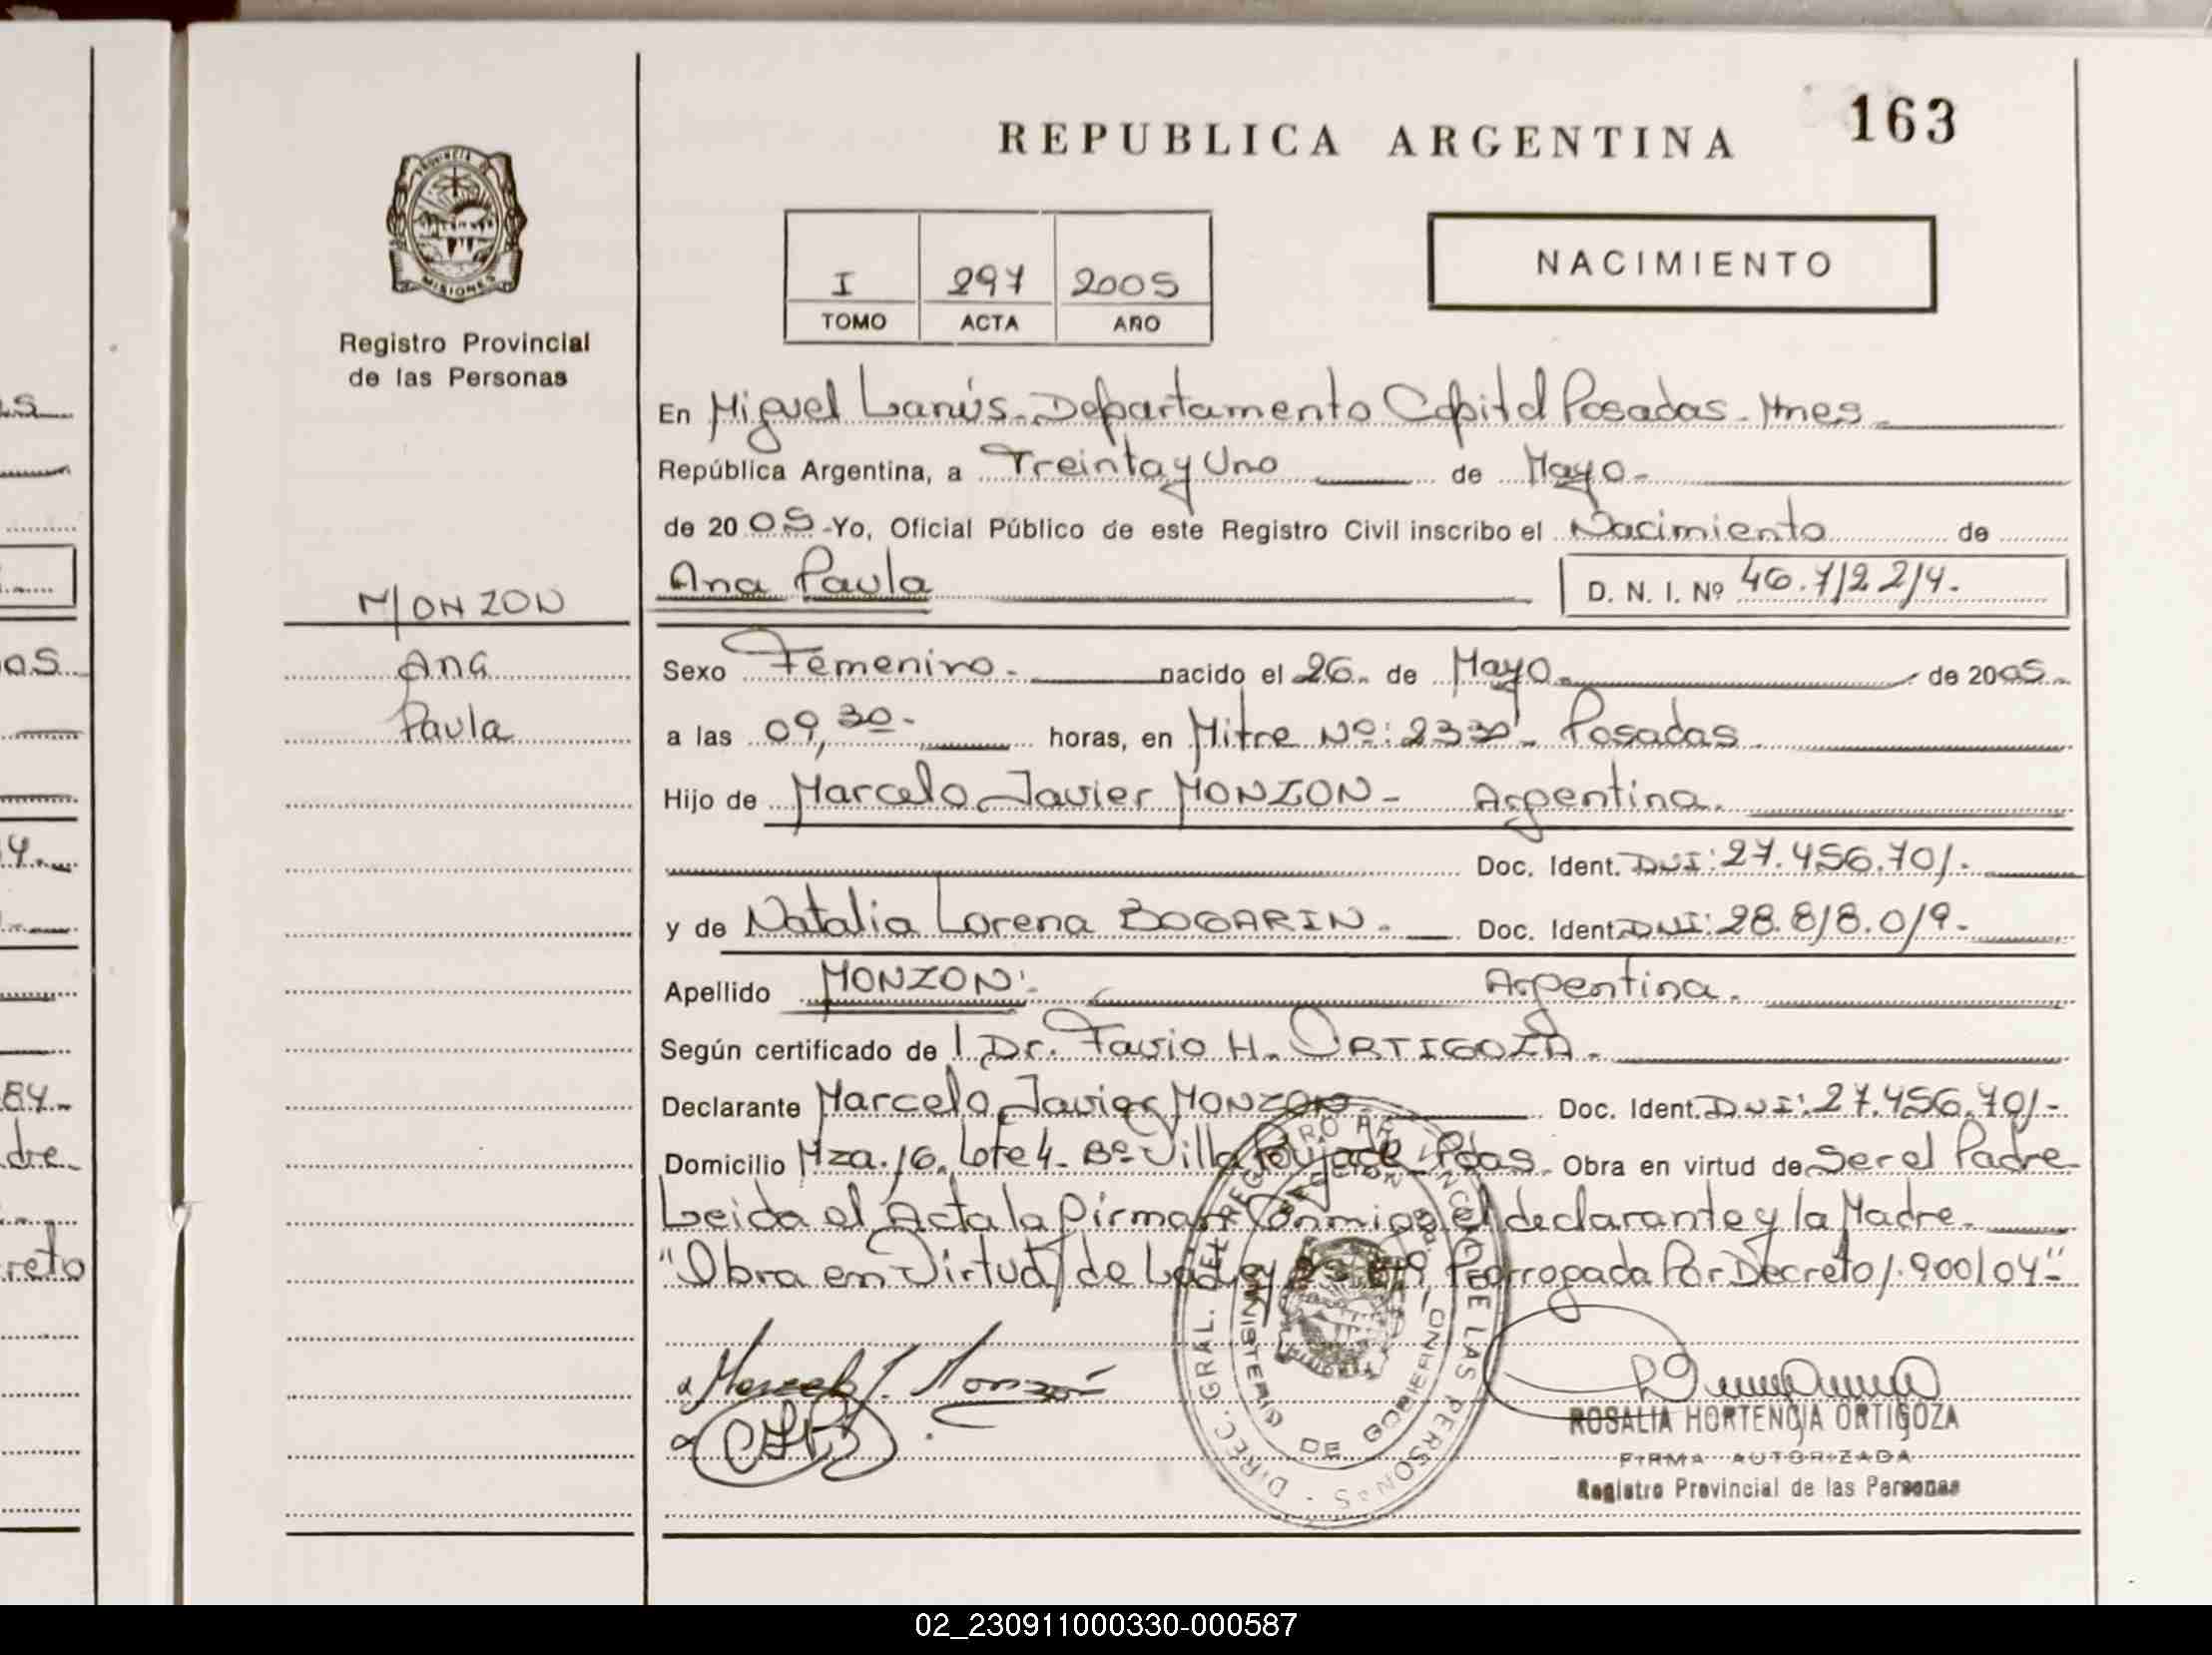 163
REPUBLICA ARGENTINA
PROVINCIA DE
MISIONES
Registro Provincial
de las Personas
I 297 2005
TOMO ACTA AÑO
NACIMIENTO
En Miguel Lanús - Departamento Capital Posadas - Mnes -
República Argentina, a Treinta y Uno de Mayo -
de 2005 - Yo, Oficial Público de este Registro Civil inscribo el Nacimiento de
Ana Paula D. N. I. Nº 46.712214.
MONZON
Ana
Paula
Sexo Femenino. nacido el 26 de Mayo de 2005
a las 09,30 - horas, en Mitre Nº: 2330 - Posadas
Hijo de Marcelo Javier MONZON - Argentina.
Doc. Ident. DNI: 27.456.701.
y de Natalia Lorena BOGARIN. Doc. Ident. DNI: 28.818.019.
Apellido MONZON Argentina.
Según certificado de l Dr. Favio H. ORTIGOZA.
Declarante Marcelo Javier MONZON Doc. Ident. DNI: 27.456.701 -
Domicilio Mza. 16. Lote 4 - Bº Villa Poujade - Pdas Obra en virtud de Ser el Padre
Leida el Acta la firman Conmigo el declarante y la Madre.
"Obra en Virtud de La Ley Prorrogada Por Decreto 1.900/04"
Marcelo J. Monzón
DIREC. GRAL. DEL REGISTRO PROVINCIAL DE LAS PERSONAS
MINISTERIO DE GOBIERNO
ROSALIA HORTENCIA ORTIGOZA
FIRMA AUTORIZADA
Registro Provincial de las Personas
02_230911000330-000587